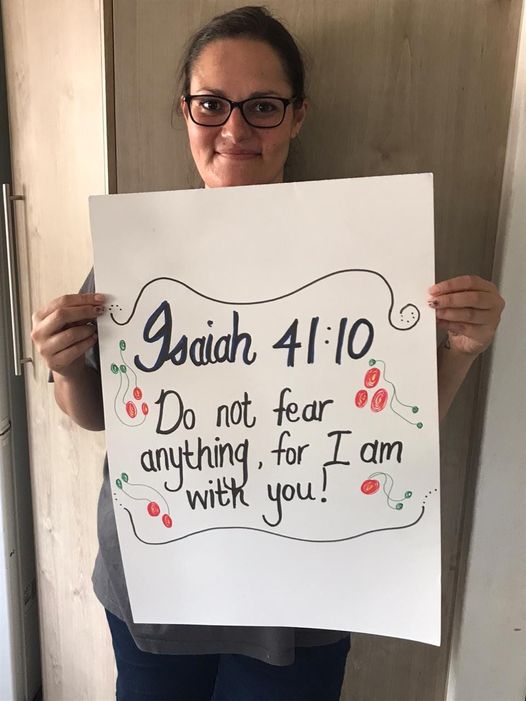 Isaiah 41:10
Do not fear
anything, for I am
with you!